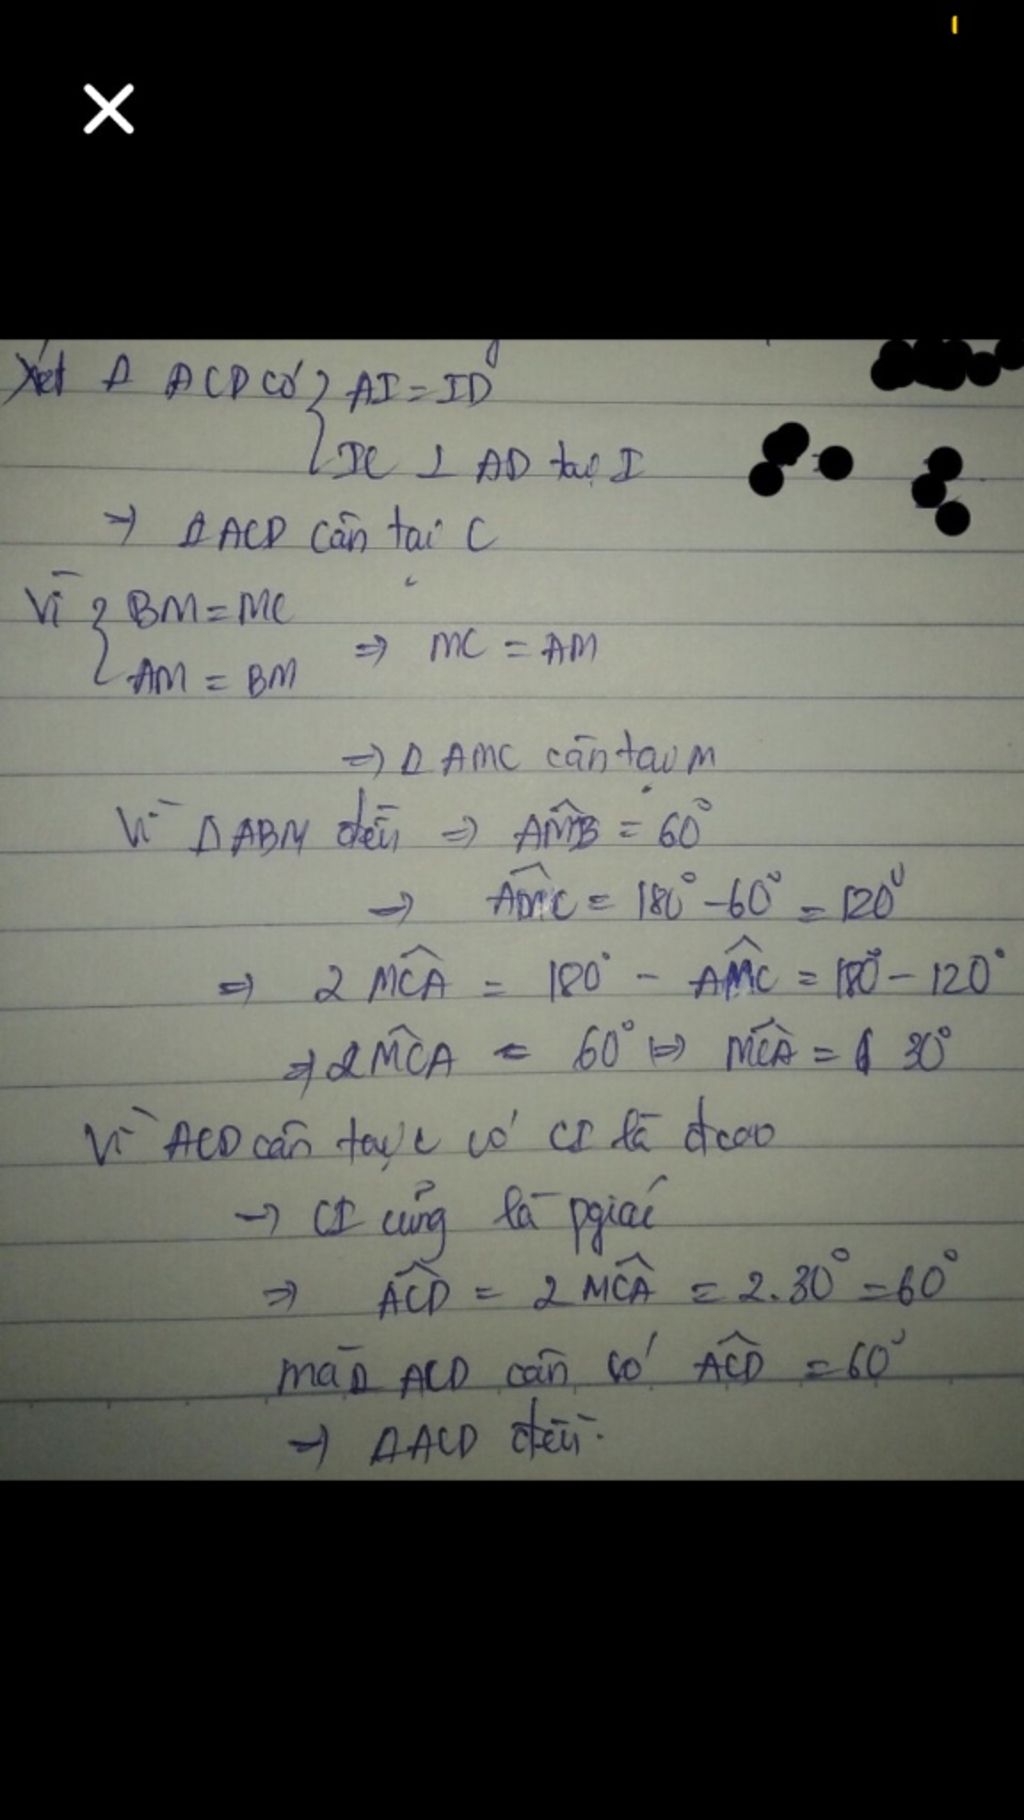 Xét Δ ACD có { AI = ID
{ IC ⊥ AD tại I
⇒ Δ ACD cân tại C
Vì { BM = MC
{ AM = BM ⇒ MC = AM
⇒ Δ AMC cân tại M
Vì Δ ABM đều ⇒ AMB̂ = 60°
⇒ AMĈ = 180° - 60° = 120°
⇒ 2 MCÂ = 180° - AMĈ = 180° - 120°
⇒ 2 MCÂ = 60° ⇒ MCÂ = 30°
Vì ACD cân tại C có CI là đcao
→ CI cũng là pgiác
⇒ ACD̂ = 2 MCÂ = 2.30° = 60°
mà Δ ACD cân có ACD̂ = 60°
⇒ Δ ACD đều.